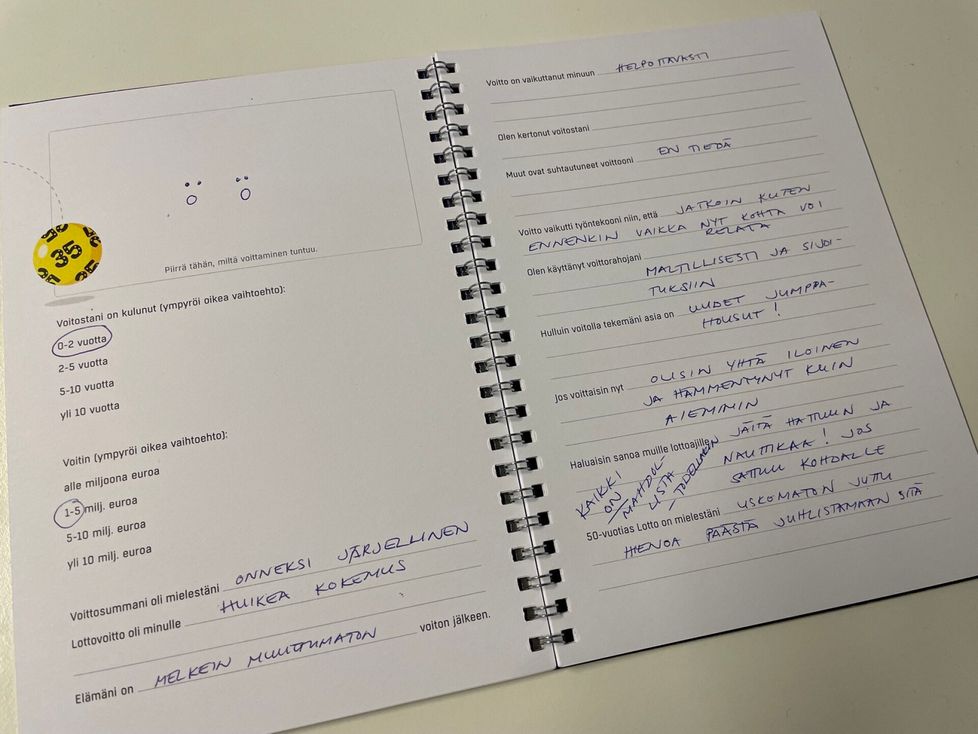 35
Piirrä tähän, miltä voittaminen tuntuu.
Voitostani on kulunut (ympyröi oikea vaihtoehto):
0-2 vuotta
2-5 vuotta
5-10 vuotta
yli 10 vuotta
Voitin (ympyröi oikea vaihtoehto):
alle miljoona euroa
1-5 milj. euroa
5-10 milj. euroa
yli 10 milj. euroa
Voittosummani oli mielestäni ONNEKSI JÄRJELLINEN
Lottovoitto oli minulle HUIKEA KOKEMUS
Elämäni on MELKEIN MUUTTUMATON voiton jälkeen.
Voitto on vaikuttanut minuun HELPOTTAVASTI
Olen kertonut voitostani
Muut ovat suhtautuneet voittooni EN TIEDÄ
Voitto vaikutti työntekooni niin, että JATKOIN KUTEN
ENNENKIN VAIKKA NYT KOHTA VOI
RELATA
Olen käyttänyt voittorahojani MALTILLISESTI JA SIJOI-
TUKSIIN
Hulluin voitolla tekemäni asia on UUDET JUMPPA-
HOUSUT!
Jos voittaisin nyt OLISIN YHTÄ ILOINEN
JA HÄMMENTYNYT KUIN
AIEMMIN
Haluaisin sanoa muille lottoajille JÄITÄ HATTUUN JA
NAUTTIKAA! JOS
SATTUU KOHDALLE
KAIKKI
ON
MAHDOL-
LISTA
TODELLAKIN
50-vuotias Lotto on mielestäni USKOMATON JUTTU
HIENOA PÄÄSTÄ JUHLISTAMAAN SITÄ